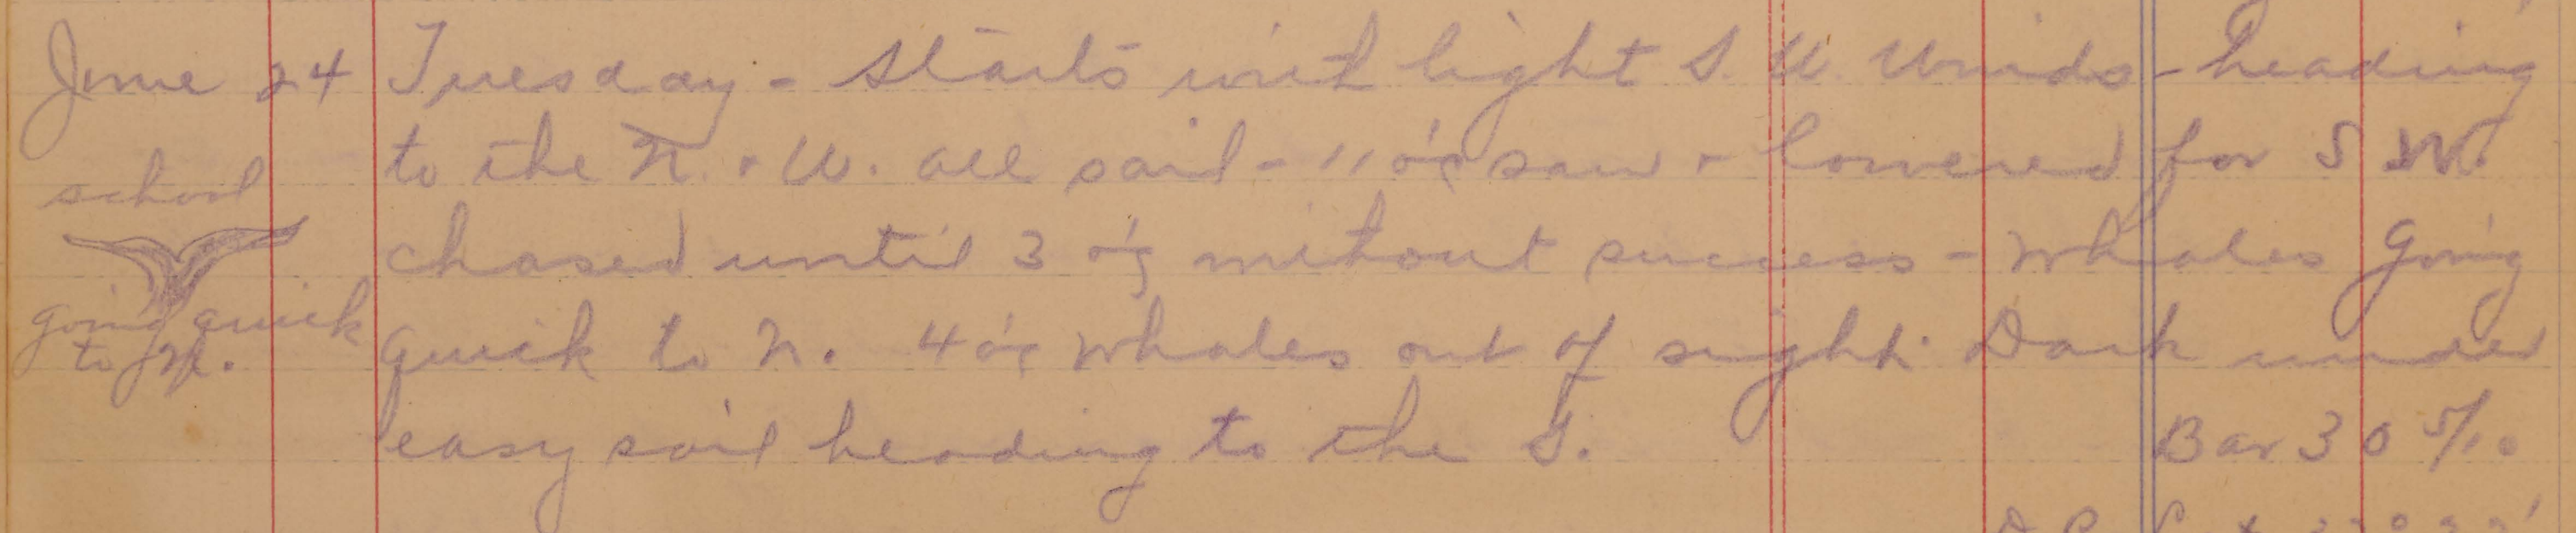 June 24 Tuesday - Starts with light S. W. Winds - heading
to the N. + W. all sail - 11 o'c saw + lowered for S W.
school
chased until 3 o'c without success - Whales Going
going quick
to N.
quick to N. 4 o'c Whales out of sight. Dark under
easy sail heading to the S.
Bar 30 5/10